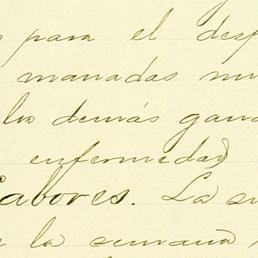 para el desp
manadas
los demás gana
enfermedad
Labores. La s
la semana